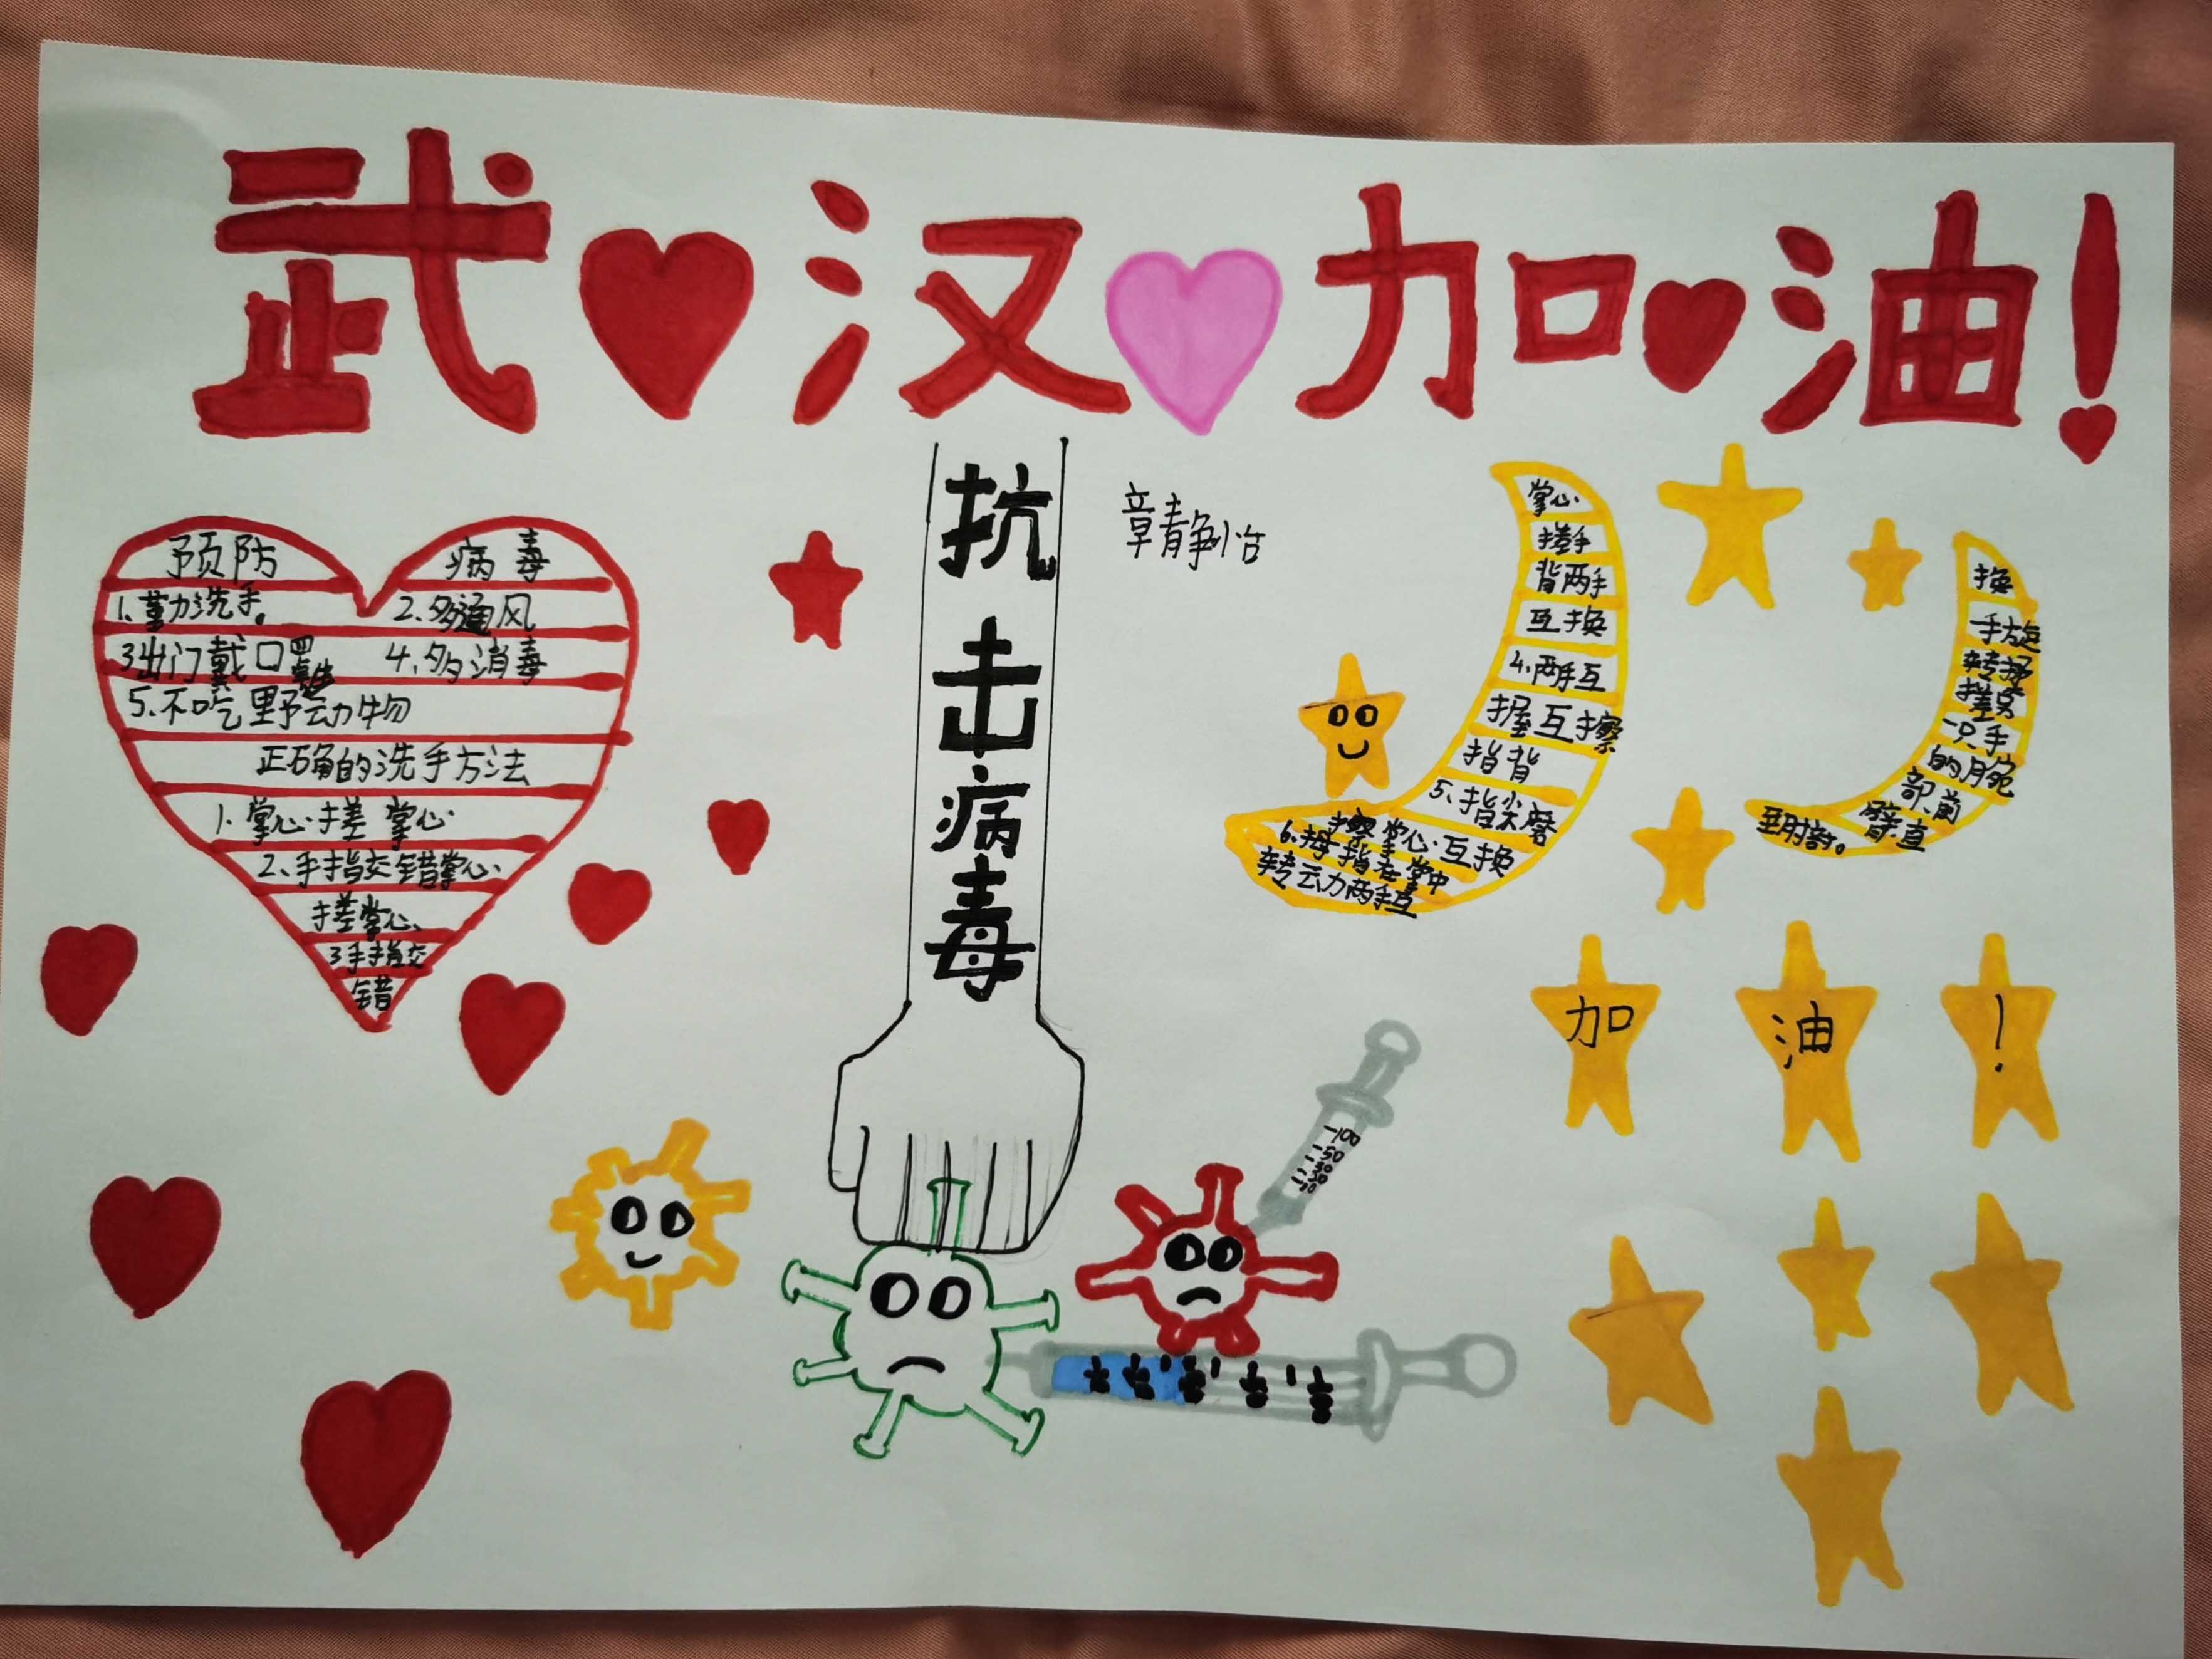 武汉加油!
抗
击
病
毒
章静怡
预防 病毒
1.勤洗手。 2.多通风
3出门戴口罩 4.多消毒
5.不吃野动物
正确的洗手方法
1.掌心搓掌心
2.手指交错掌心
搓掌心、
3手指交
错
掌心
搓手
背两手
互换
4.两手互
握互擦
指背
5.指尖磨
擦掌心互换
6.拇指在掌中
转动两手互
换
一手旋
转搓另
一只手
的腕
部前
臂直
至肘部。
加
油
!
-100
-50
-30
-20
-10